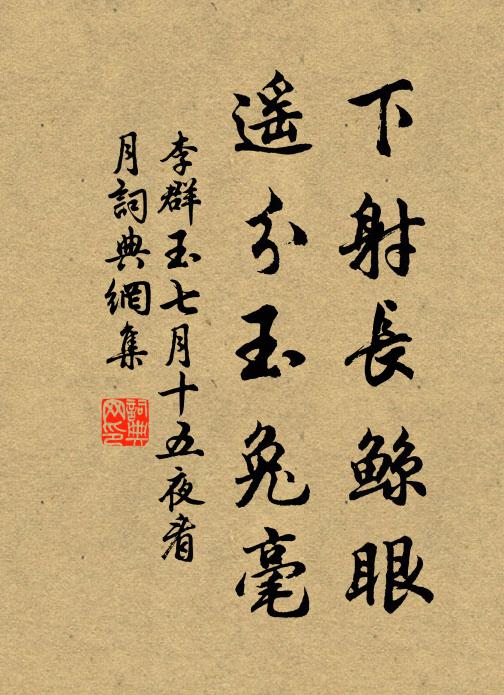 下射長鲸眼
遥分玉兔毫
李群玉七月十五夜看
月詞典網集
詞典
网印